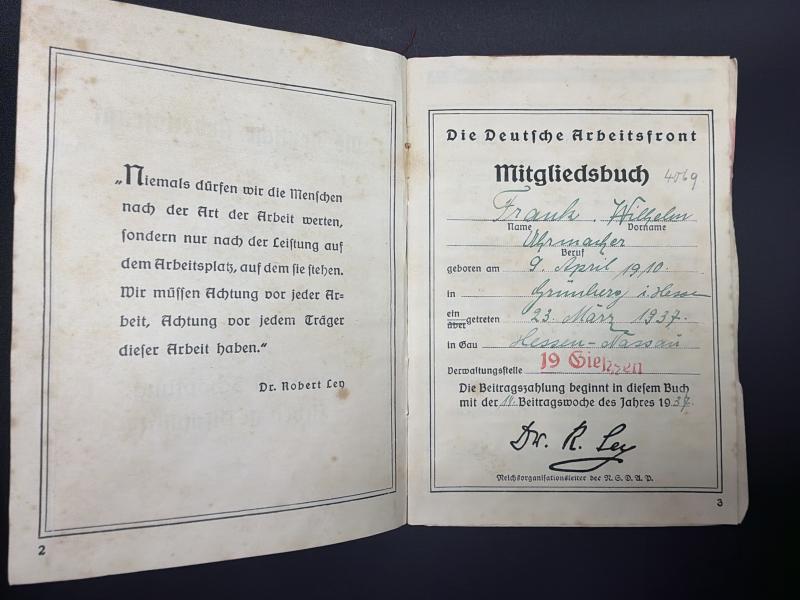 „Niemals dürfen wir die Menschen
nach der Art der Arbeit werten,
sondern nur nach der Leistung auf
dem Arbeitsplatz, auf dem sie stehen.
Wir müssen Achtung vor jeder Ar=
beit, Achtung vor jedem Träger
dieser Arbeit haben.“
Dr. Robert Ley
2
Die Deutsche Arbeitsfront
Mitgliedsbuch 4069
Frank, Wilhelm
Name Vorname
Uhrmacher
Beruf
geboren am 9. April 1910.
in Grünberg i. Hessen
ein
über getreten 23. März 1937.
in Gau Hessen-Nassau
Verwaltungsstelle 19 Gießen
Die Beitragszahlung beginnt in diesem Buch
mit der 11. Beitragswoche des Jahres 1937.
Dr. R. Ley
Reichsorganisationsleiter der N.S.D.A.P.
3